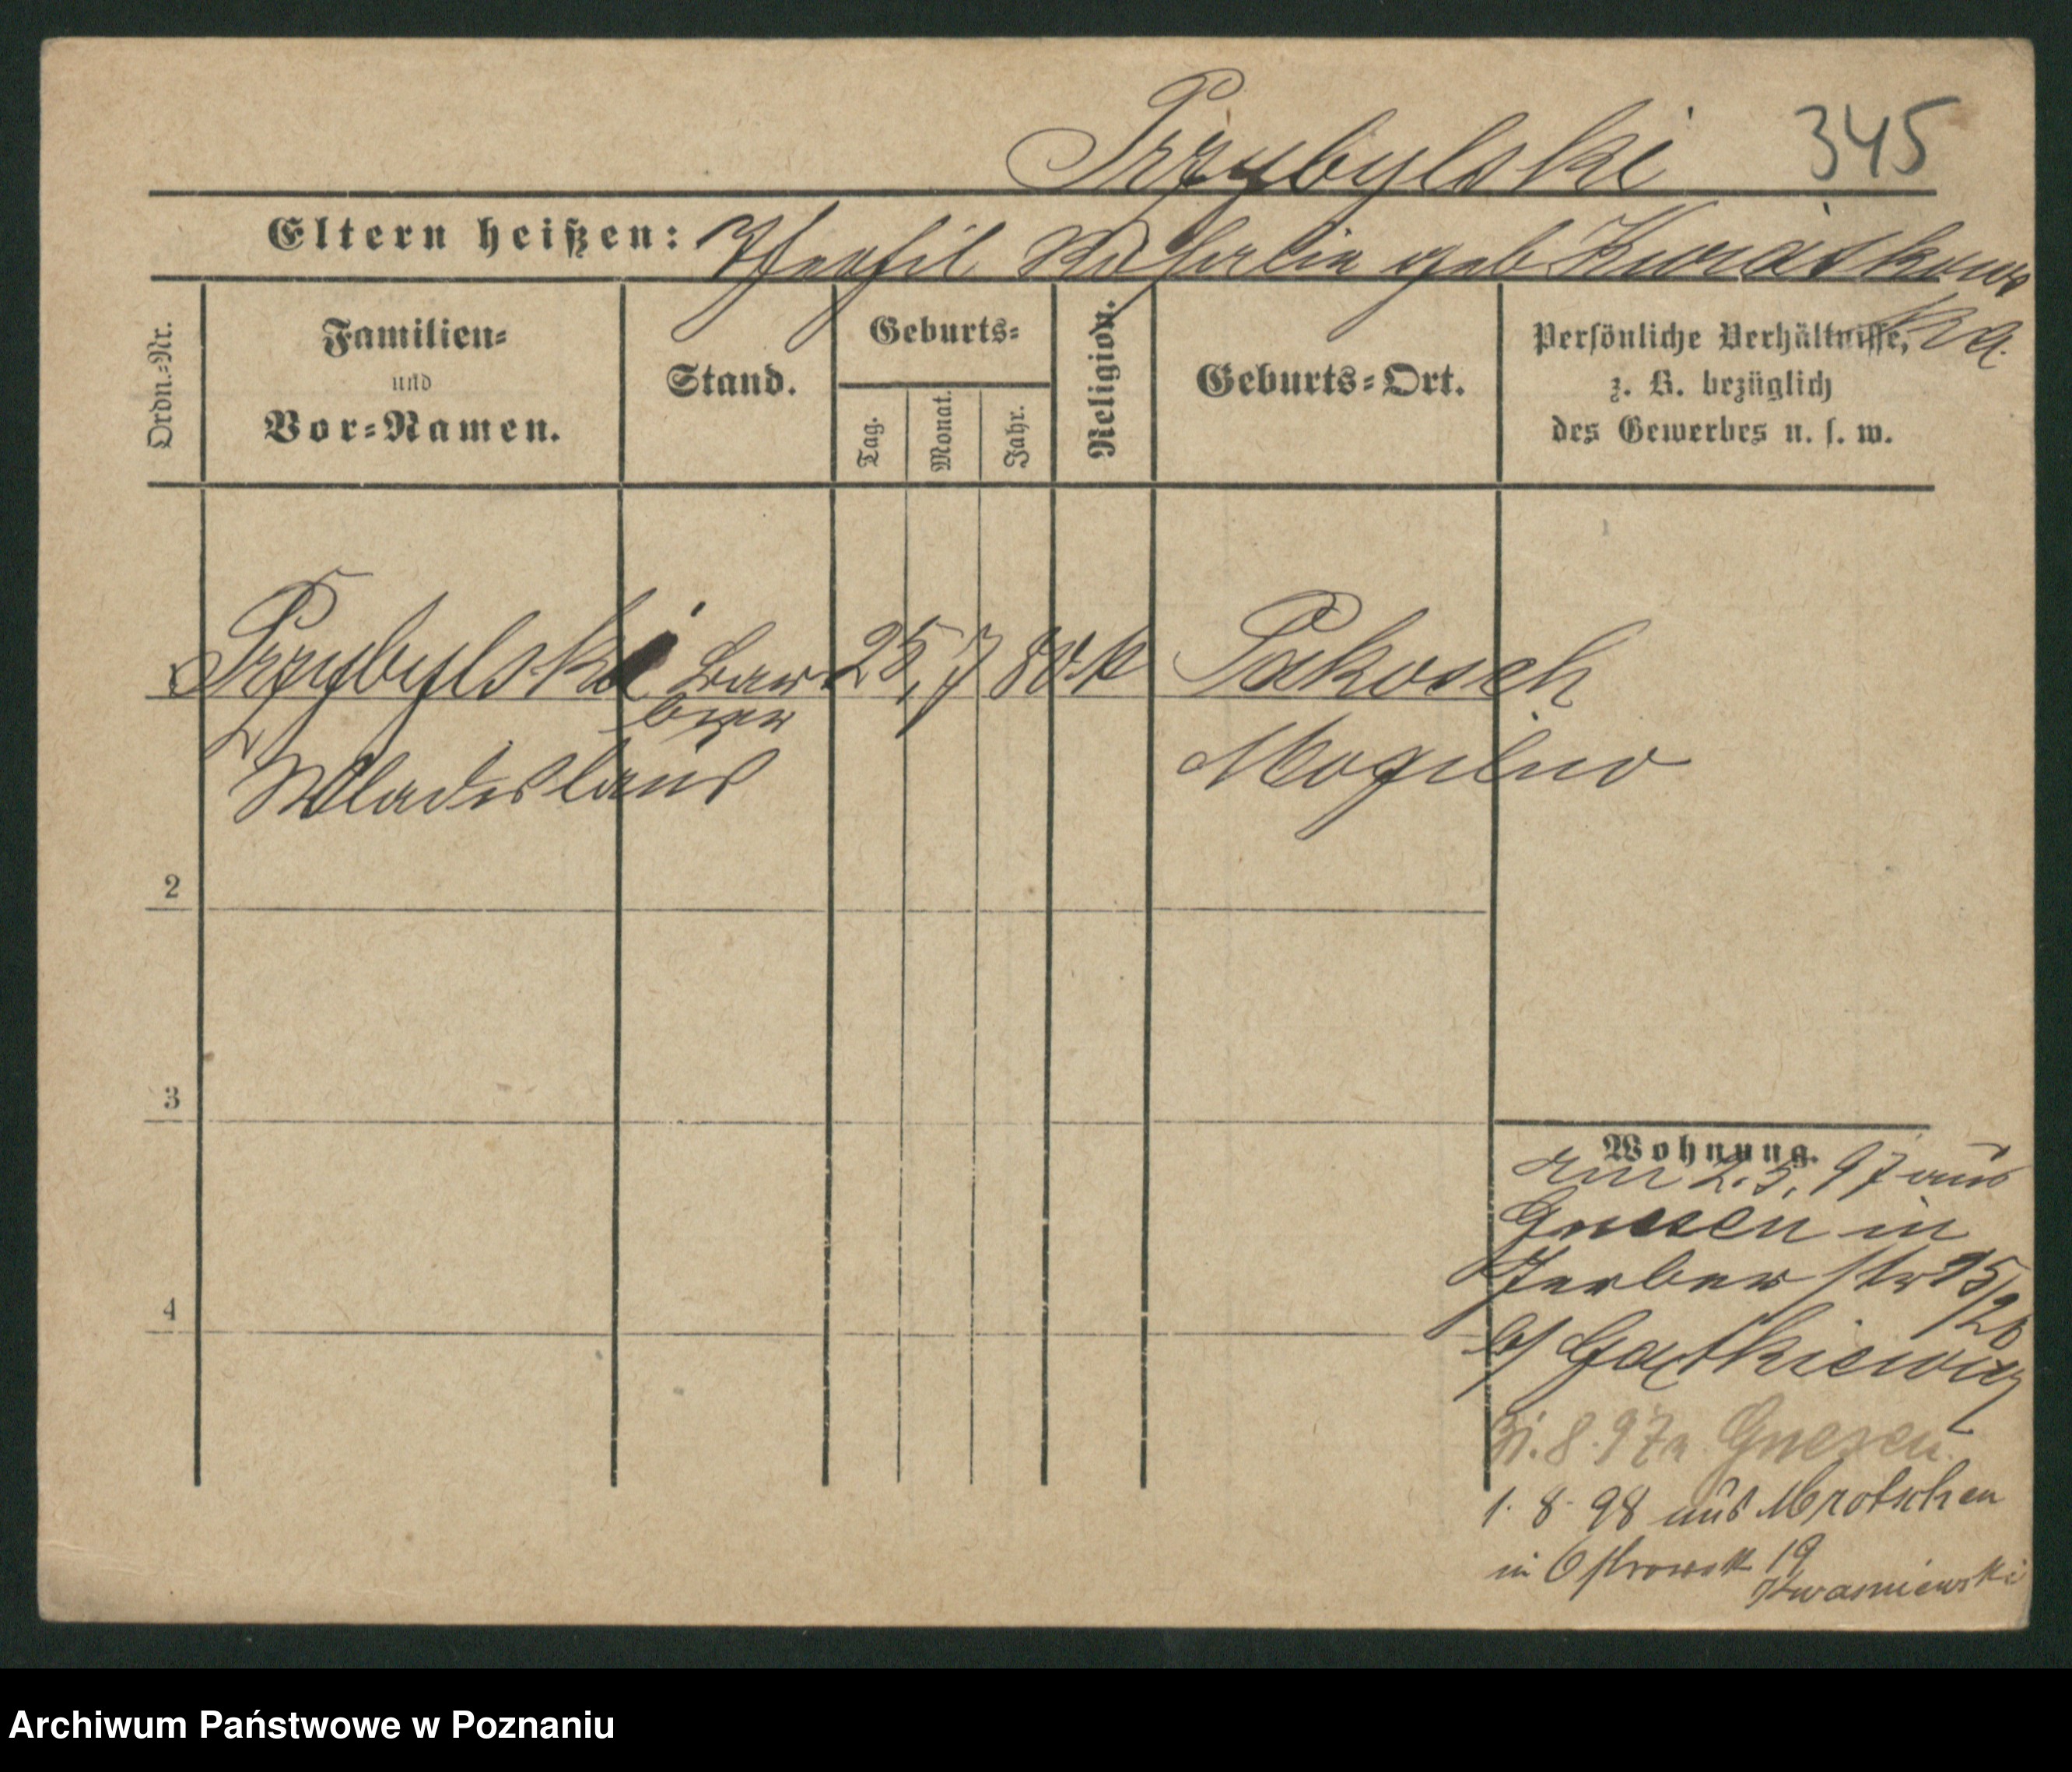 Przybylski 345
Eltern heißen: geb Kwiatkows
ka.
Ordn.-Nr.
Familien-
und
Vor-Namen.
Stand.
Geburts-
Tag.
Monat.
Jahr.
Religion.
Geburts-Ort.
Persönliche Verhältnisse,
z. B. bezüglich
des Gewerbes u. s. w.
Przybylski Bar 25. 7 80 k Pakosch
bier
Wladislaus Mogilno
2
3
4
Wohnung.
am 2.5.97 aus
Gnesen in
Gerber str
b/
31.8.97 n. Gnesen
1. 8. 98 aus Mrotschen
in Ostrowstr 19
Kwasniewski
Archiwum Państwowe w Poznaniu